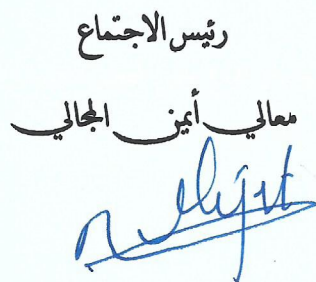 رئيس الاجتماع
معالي أيمن المجالي